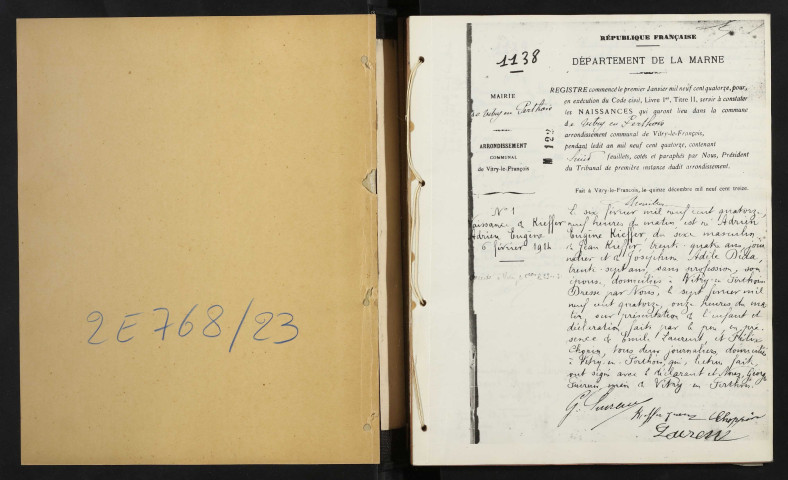 2E768/23
1138
RÉPUBLIQUE FRANÇAISE
DÉPARTEMENT DE LA MARNE
MAIRIE
en Perthois
ARRONDISSEMENT
COMMUNAL
de Vitry-le-François
REGISTRE commencé le premier Janvier mil neuf cent quatorze, pour,
en exécution du Code civil, Livre Ier, Titre II, servir à constater
les NAISSANCES qui auront lieu dans la commune
de en Perthois
arrondissement communal de Vitry-le-François,
pendant ledit an mil neuf cent quatorze, contenant
huit feuillets, cotés et paraphés par Nous, Président
du Tribunal de première instance dudit arrondissement.
Fait à Vitry-le-François, le quinze décembre mil neuf cent treize.
N° 1
Naissance de Kieffer
Adrien Eugène
6 février 1914
Le six février mil neuf cent quatorze,
neuf heures du matin est né Adrien
Eugène Kieffer, du sexe masculin
de Jean Kieffer, trente-quatre ans, jour
nalier et de Joséphine Adèle
trente-sept ans, sans profession, son
épouse, domiciliés à Vitry-en-Perthois
Dressé par Nous, le sept février mil
neuf cent quatorze, onze heures du ma
tin, sur présentation de l'enfant et
déclaration faite par le père, en pré
sence de Emile Laurent, et Félix
tous deux journaliers, domiciliés
à Vitry-en-Perthois, qui, lecture faite,
ont signé avec le déclarant et Nous, George
maire de Vitry-en-Perthois.
Kieffer
Laurent